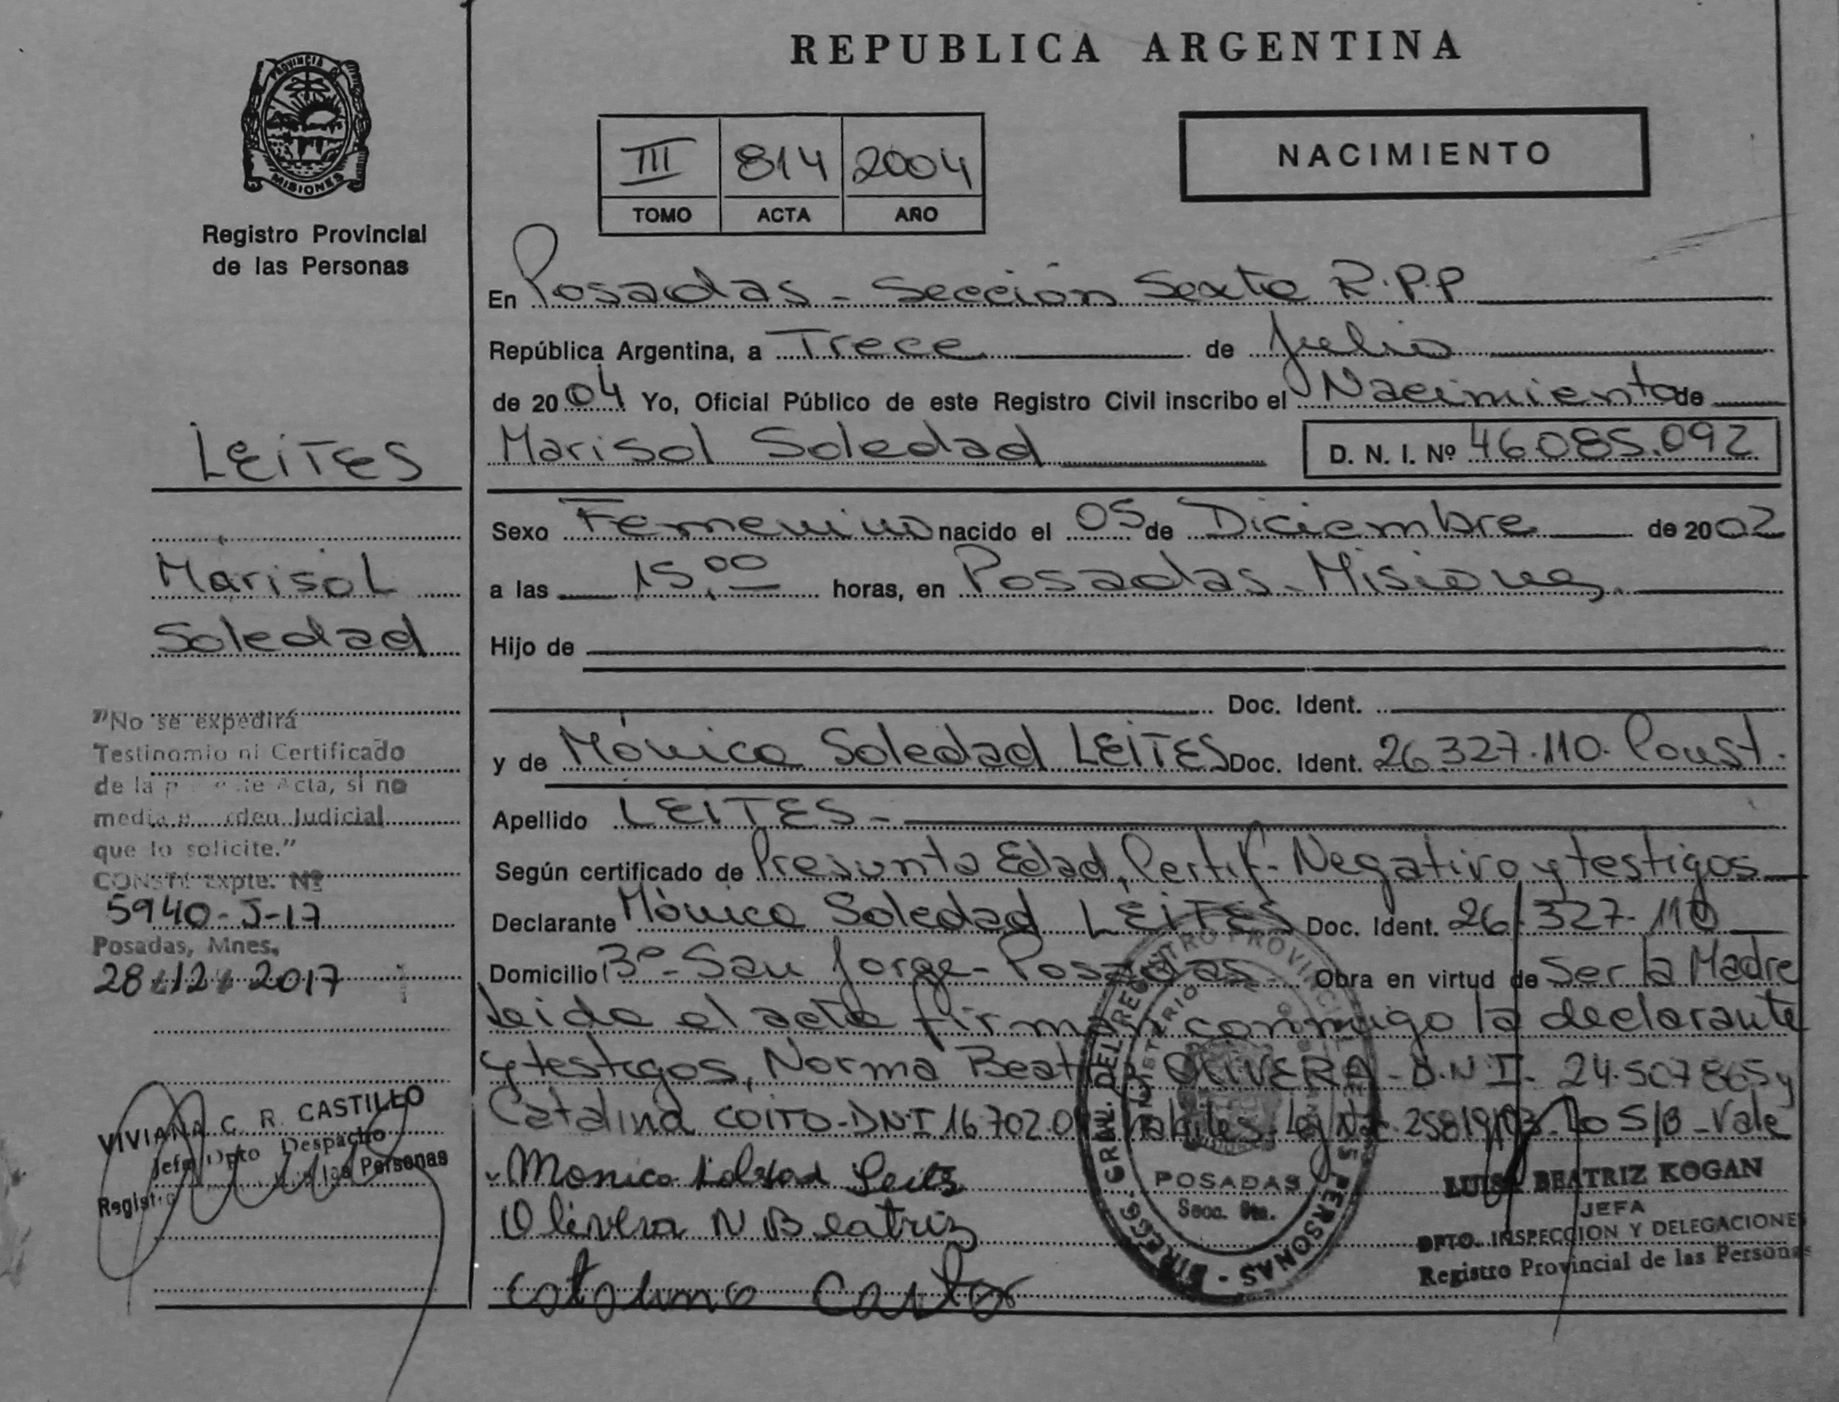 PROVINCIA DE
MISIONES
Registro Provincial
de las Personas
REPUBLICA ARGENTINA
III 814 2004
TOMO ACTA AÑO
NACIMIENTO
En Posadas - Sección Sexta R.P.P
República Argentina, a Trece de Julio
de 2004 Yo, Oficial Público de este Registro Civil inscribo el Nacimiento de
Marisol Soledad D. N. I. Nº 46.085.092
Sexo Femenino nacido el 05 de Diciembre de 2002
a las 15,00 horas, en Posadas - Misiones.
Hijo de
Doc. Ident.
y de Mónica Soledad LEITES Doc. Ident. 26.327.110.
Apellido LEITES -
Según certificado de Presunta Edad, Certif. Negativo y testigos
Declarante Mónica Soledad LEITES Doc. Ident. 26.327.110
Domicilio 3º - San Jorge - Posadas - Obra en virtud de Ser la Madre
Leida el acta firman conmigo la declarante
y testigos, Norma Beatriz OLIVERA - D.N.I - 24.507865 y
Catalina COITO - DNI 16.702.0 hábiles - Ley Nº 25819/03 - Lo S/B - Vale
Monica Leites
Olivera N Beatriz
LEITES
Marisol
Soledad
"No se expedirá
Testimonio ni Certificado
de la Acta, si no
media Judicial
que lo solicite."
CONSTE Expte. Nº
5940-J-17
Posadas, Mnes,
28 12 2017
VIVIANA C. R. CASTILLO
Jefe Dpto Despacho
las Personas
DIREGG. GRAL. DEL REGISTRO PROVINCIAL DE LAS PERSONAS
MINISTERIO
POSADAS
Secc. 6ta.
LUISA BEATRIZ KOGAN
JEFA
DPTO. INSPECCION Y DELEGACIONES
Registro Provincial de las Personas